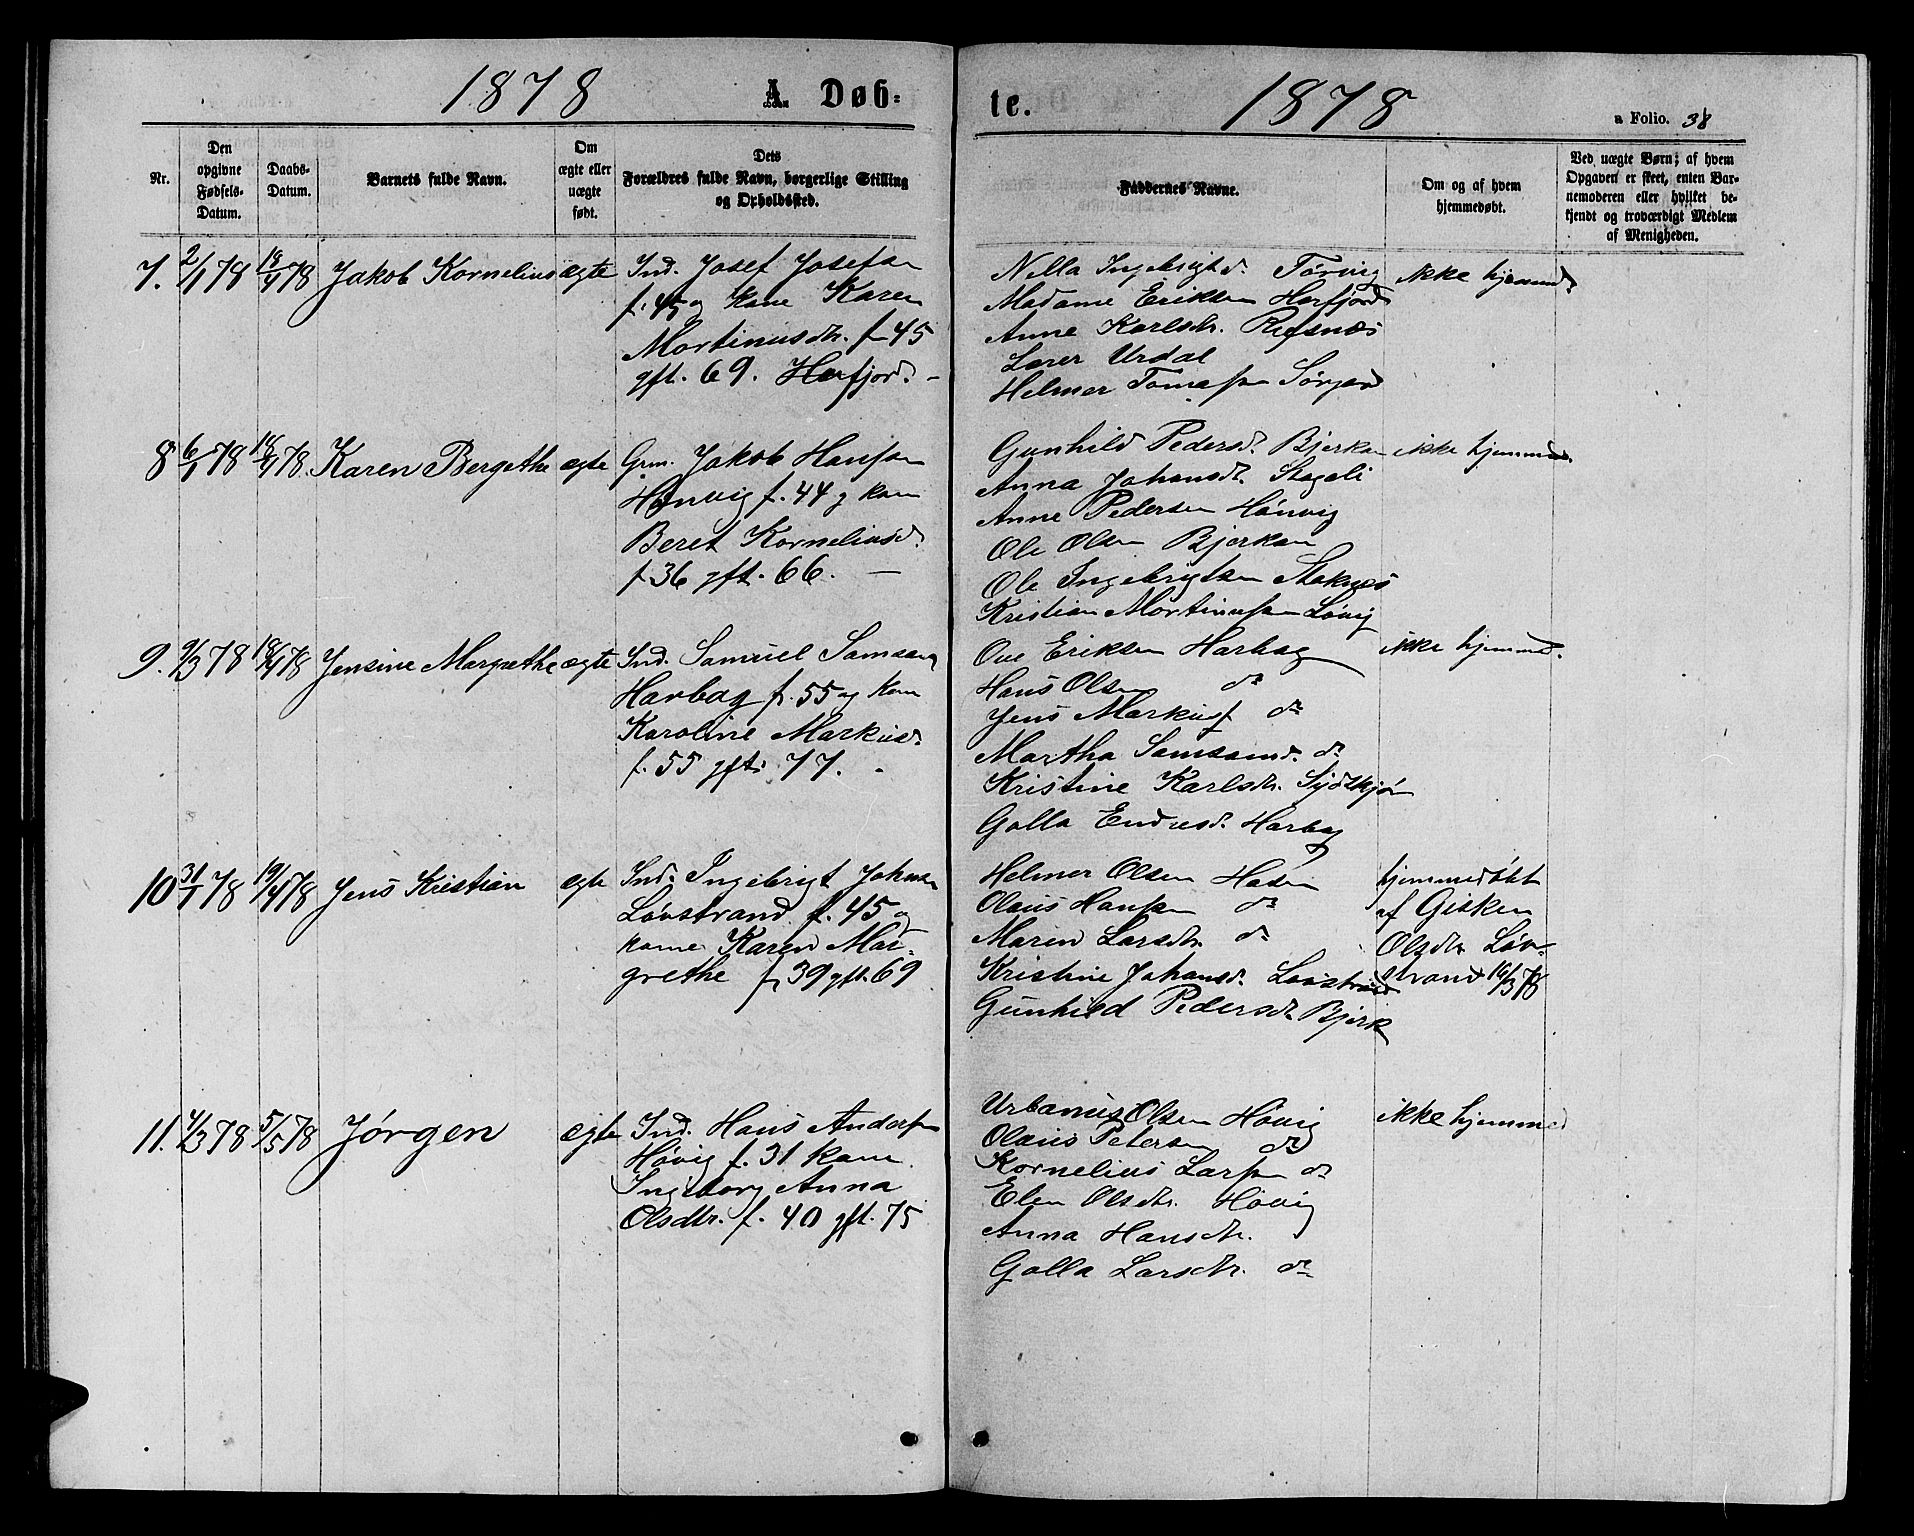 1878 A. Døb=
te. 1878 a Folio. 38
Nr.
Den opgivne Fødsels-Datum.
Daabs-Datum.
Barnets fulde Navn.
Om ægte eller uægte født.
Dets Forældres fulde Navn, borgerlige Stilling og Opholdssted.
Faddernes Navne.
Om og af hvem hjemmedøbt.
Ved uægte Børn; af hvem Opgaven er skeet, enten Barnemoderen eller hvilket bekjendt og troværdigt Medlem af Menigheden.
7. 2/1 78 18/4 78 Jakob Kornelius ægte
Ind. Josef Josefsen
f. 45 og kone Karen
Martinusdtr. f. 45
gft. 69. Herfjord. -
Nella Ingebrigtd. Tørvig
Madame Eriksen Herfjord
Anne Karlsdtr. Refsnæs
Lærer Urdal
Helmer
ikke hjemmed.
8 6/1 78 18/4 78. Karen Bergethe ægte
Grm. Jakob Hansen
Hønvig f. 44 og kone
Beret Korneliusd.
f. 36 gft. 66. —
Gunhild Pedersd. Bjerkan
Anna Johansdtr.
Anne Pedersen Hønvig
Ole Olsen Bjerkan
Ole Ingebrigtsen Stoknes
Kristian Martinussen Løvig
ikke hjemmed.
9. 9/3 78 18/4 78 Jensine Margrethe ægte
Ind. Samuel Samsen
Harbag f. 55 og kone
Karoline Markusd.
f. 55 gft. 77. -
Ove Eriksen Harbag
Hans Olsen do
Jens Markusf do
Martha Samsond. do
Kristine Karlsdtr.
Golla Endresd. Harbag
ikke hjemmed.
10 31/1 78 19/4 78 Jens Kristian ægte
Ind. Ingebrigt Johnsen
Løvstrand f. 45 og
kone Karen Mar-
grethe f. 39 gft. 69
Helmer Olsen
Olaus Hansen do
Maren Larsdtr. do
Kristine Johansd. Løvstrand
Gunhild Pedersdtr. Bjerk
hjemmedøbt
af Gisken
Olsdtr. Løv-
strand 16/3 78
11. 4/3 78 5/5 78 Jørgen ægte
Ind. Hans Andersen
Høvig f. 31 kone
Ingeborg Anna
Olsdtr. f. 40 gft. 75
Urbanus Olsen Høvig
Olaus Petersen do
Kornelius Larsen do
Elen Olsdtr. Høvig
Anna Hansdtr.
Golla Larsdtr. do
ikke hjemmed